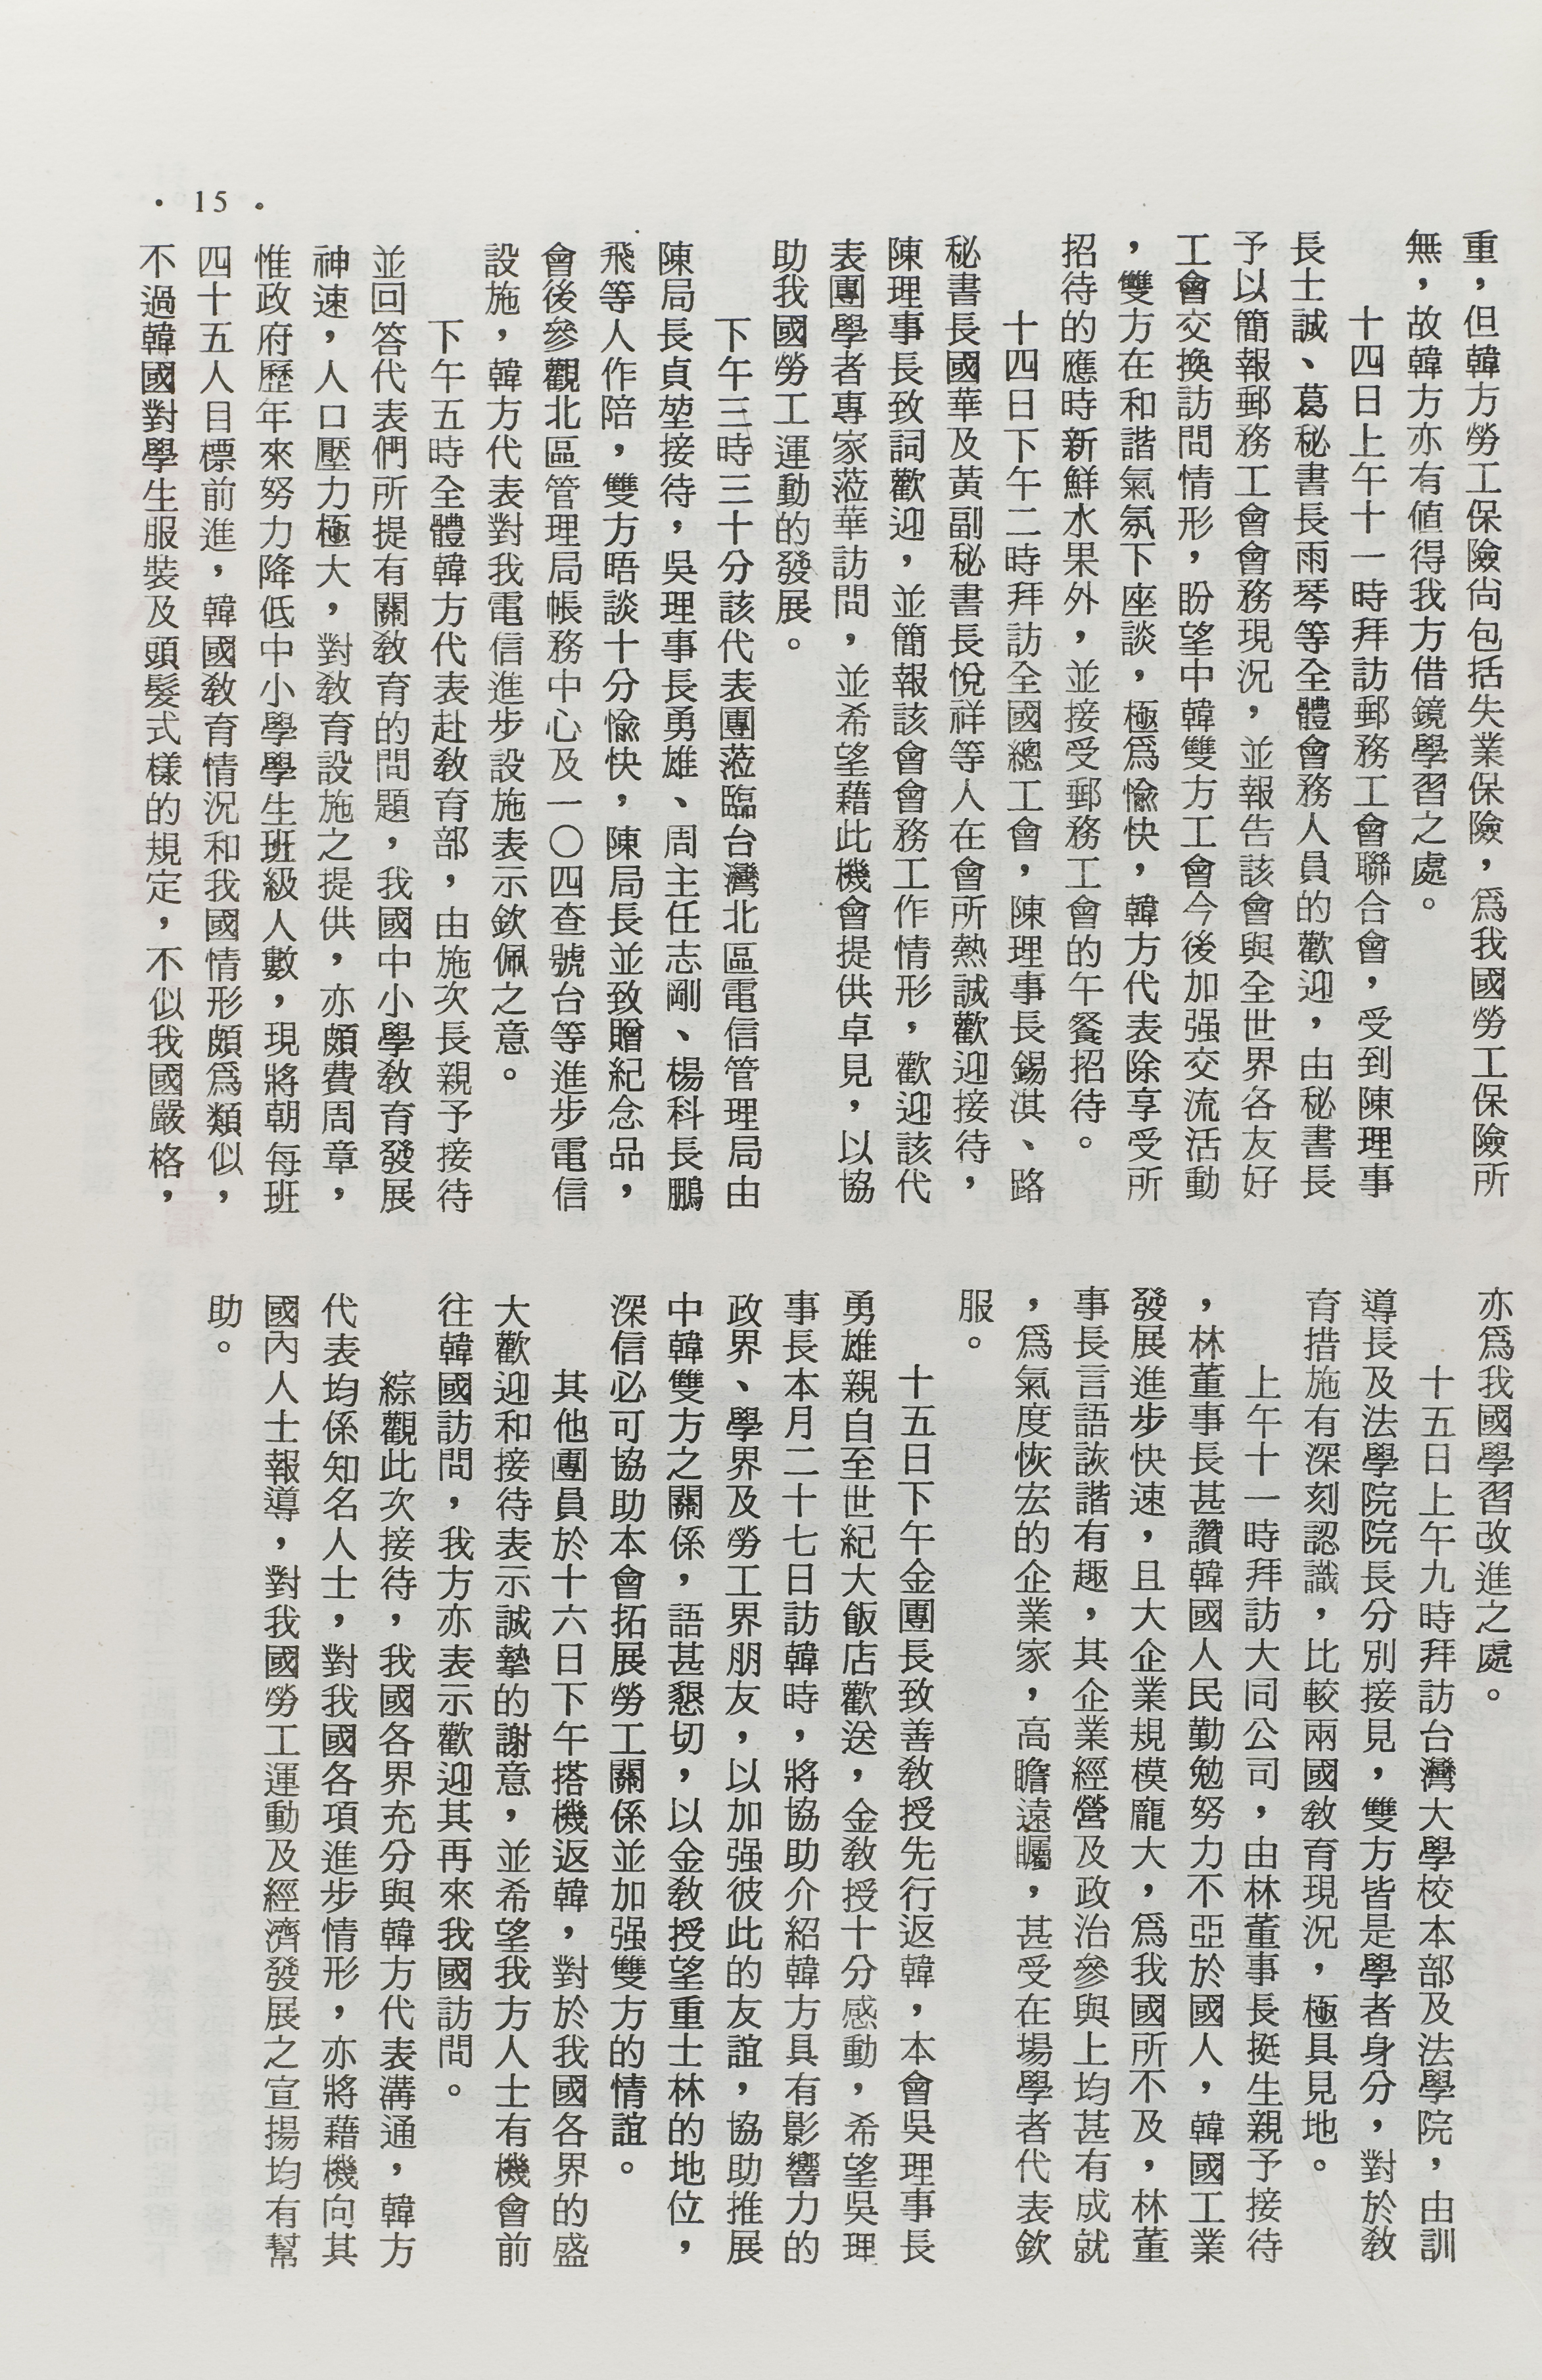 重，但韓方勞工保險尙包括失業保險，爲我國勞工保險所
無，故韓方亦有値得我方借鏡學習之處。
十四日上午十一時拜訪郵務工會聯合會，受到陳理事
長士誠、葛秘書長雨琴等全體會務人員的歡迎，由秘書長
予以簡報郵務工會會務現況，並報告該會與全世界各友好
工會交換訪問情形，盼望中韓雙方工會今後加强交流活動
，雙方在和諧氣氛下座談，極爲愉快，韓方代表除享受所
招待的應時新鮮水果外，並接受郵務工會的午餐招待。
十四日下午二時拜訪全國總工會，陳理事長錫淇、路
秘書長國華及黃副秘書長悅祥等人在會所熱誠歡迎接待，
陳理事長致詞歡迎，並簡報該會會務工作情形，歡迎該代
表團學者專家蒞華訪問，並希望藉此機會提供卓見，以協
助我國勞工運動的發展。
下午三時三十分該代表團蒞臨台灣北區電信管理局由
陳局長貞堃接待，吳理事長勇雄、周主任志剛、楊科長鵬
飛等人作陪，雙方晤談十分愉快，陳局長並致贈紀念品，
會後參觀北區管理局帳務中心及一〇四查號台等進步電信
設施，韓方代表對我電信進步設施表示欽佩之意。
下午五時全體韓方代表赴敎育部，由施次長親予接待
並回答代表們所提有關敎育的問題，我國中小學敎育發展
神速，人口壓力極大，對敎育設施之提供，亦頗費周章，
惟政府歷年來努力降低中小學學生班級人數，現將朝每班
四十五人目標前進，韓國敎育情況和我國情形頗爲類似，
不過韓國對學生服裝及頭髮式樣的規定，不似我國嚴格，
• 15 •
亦爲我國學習改進之處。
十五日上午九時拜訪台灣大學校本部及法學院，由訓
導長及法學院院長分別接見，雙方皆是學者身分，對於敎
育措施有深刻認識，比較兩國敎育現況，極具見地。
上午十一時拜訪大同公司，由林董事長挺生親予接待
，林董事長甚讚韓國人民勤勉努力不亞於國人，韓國工業
發展進步快速，且大企業規模龐大，爲我國所不及，林董
事長言語詼諧有趣，其企業經營及政治參與上均甚有成就
，爲氣度恢宏的企業家，高瞻遠矚，甚受在場學者代表欽
服。
十五日下午金團長致善敎授先行返韓，本會吳理事長
勇雄親自至世紀大飯店歡送，金敎授十分感動，希望吳理
事長本月二十七日訪韓時，將協助介紹韓方具有影響力的
政界、學界及勞工界朋友，以加强彼此的友誼，協助推展
中韓雙方之關係，語甚懇切，以金敎授望重士林的地位，
深信必可協助本會拓展勞工關係並加强雙方的情誼。
其他團員於十六日下午搭機返韓，對於我國各界的盛
大歡迎和接待表示誠摯的謝意，並希望我方人士有機會前
往韓國訪問，我方亦表示歡迎其再來我國訪問。
綜觀此次接待，我國各界充分與韓方代表溝通，韓方
代表均係知名人士，對我國各項進步情形，亦將藉機向其
國內人士報導，對我國勞工運動及經濟發展之宣揚均有幫
助。